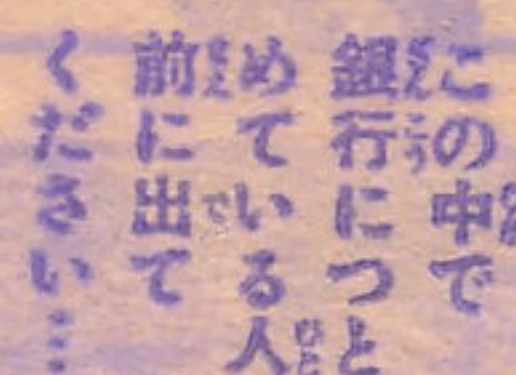 この中で
銀行につと
めている人
前に出て
ください…